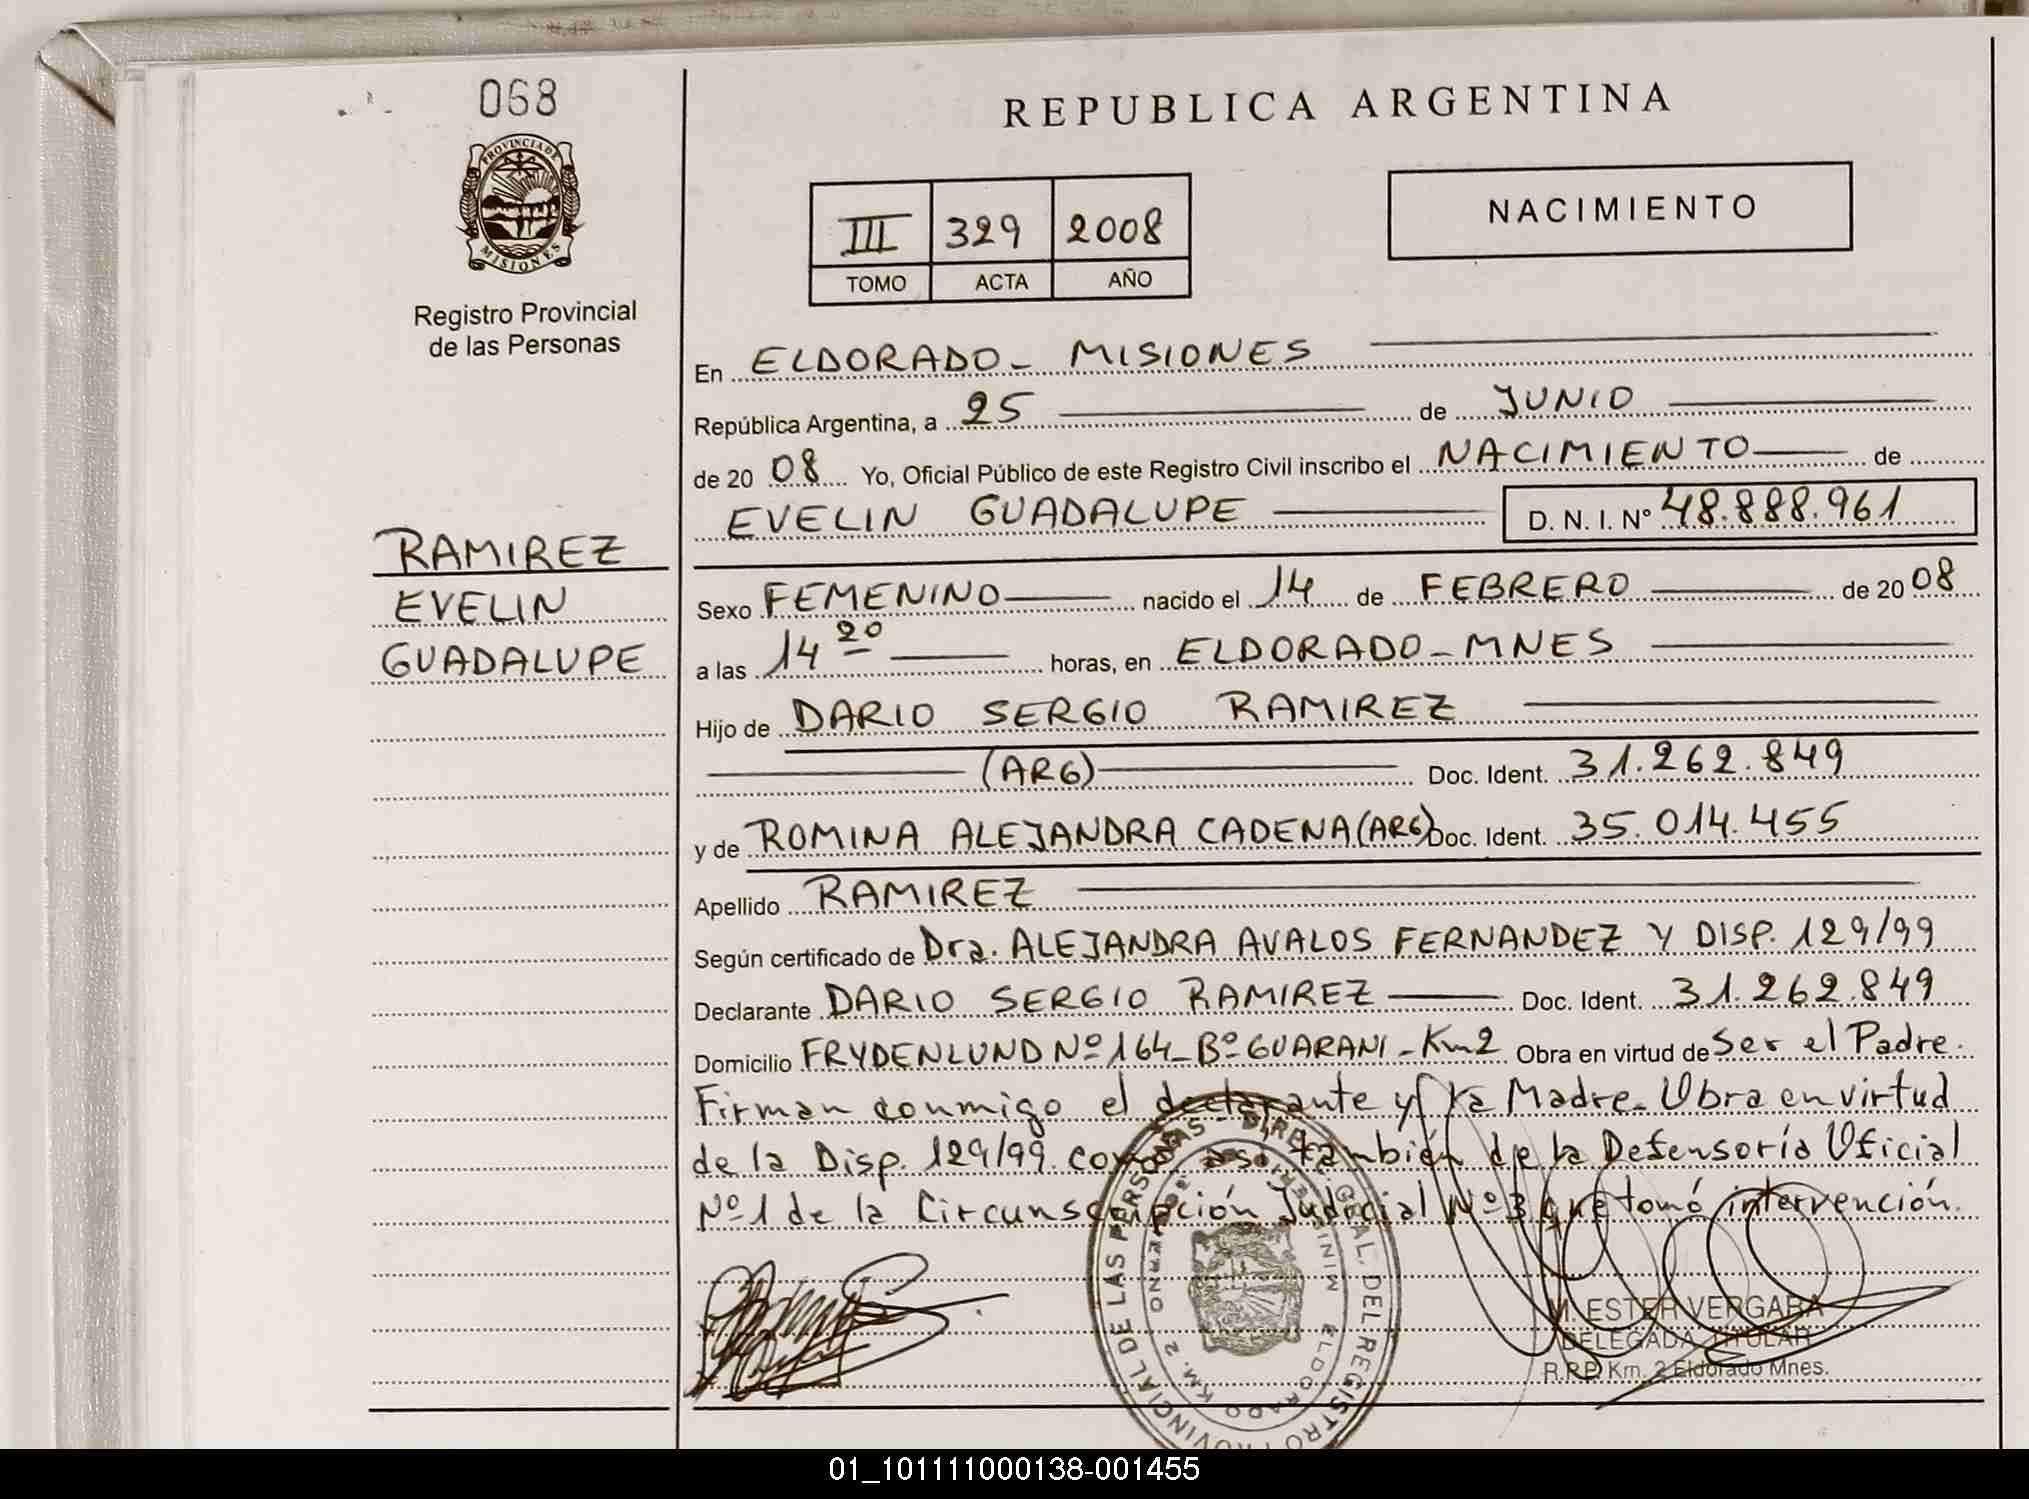 068
PROVINCIA DE
MISIONES
Registro Provincial
de las Personas
RAMIREZ
EVELIN
GUADALUPE
REPUBLICA ARGENTINA
III 329 2008
TOMO ACTA AÑO
NACIMIENTO
En ELDORADO - MISIONES
República Argentina, a 25 de JUNIO
de 2008 Yo, Oficial Público de este Registro Civil inscribo el NACIMIENTO de
EVELIN GUADALUPE D. N. I. Nº 48.888.961
Sexo FEMENINO nacido el 14 de FEBRERO de 2008
a las 14 20 horas, en ELDORADO - MNES
Hijo de DARIO SERGIO RAMIREZ
(ARG) Doc. Ident. 31.262.849
y de ROMINA ALEJANDRA CADENA (ARG) Doc. Ident. 35.014.455
Apellido RAMIREZ
Según certificado de Dra. ALEJANDRA AVALOS FERNANDEZ Y DISP. 129/99
Declarante DARIO SERGIO RAMIREZ Doc. Ident. 31.262.849
Domicilio FRYDENLUND Nº 164 - Bº GUARANI - Km 2 Obra en virtud de Ser el Padre.
Firman conmigo el declarante y la Madre. Obra en virtud
de la Disp. 129/99 como así también de la Defensoría Oficial
Nº 1 de la Circunscripción Judicial Nº 3 que tomó intervención.
DE LAS PERSONAS - DIREC. GRAL. DEL REGISTRO PROVINCIAL
ELDORADO KM. 2
M. ESTER VERGARA
DELEGADA TITULAR
R.R.P. Km. 2 Eldorado Mnes.
01_101111000138-001455